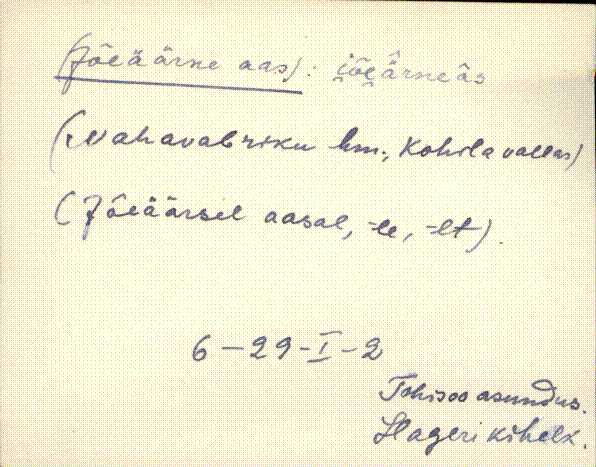 (Jõeäärne aas): i̯õe̯ä̂rneâs
(Nahavabriku hm., Kohila vallas)
(Jõeäärsel aasal, -le, -lt).
6-29-I-2
Tohisoo asundus.
Hageri kihelk.